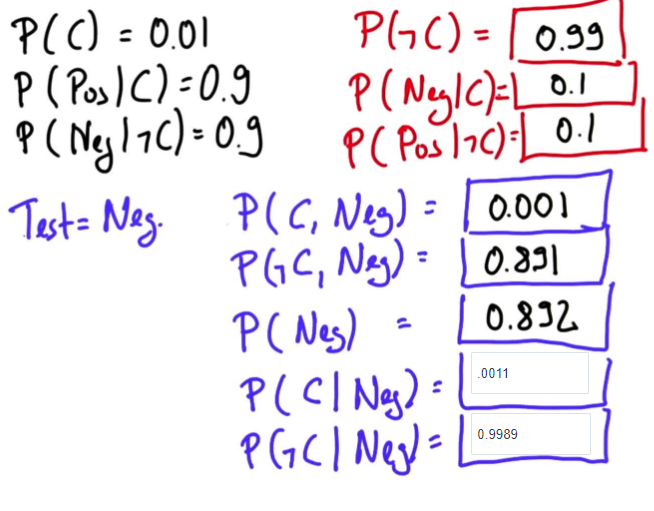 P(C) = 0.01 P(¬C) = 0.99
P(Pos|C) = 0.9 P(Neg|C) = 0.1
P(Neg|¬C) = 0.9 P(Pos|¬C) = 0.1
Test = Neg. P(C, Neg) = 0.001
P(¬C, Neg) = 0.891
P(Neg) = 0.892
P(C|Neg) = .0011
P(¬C|Neg) = 0.9989